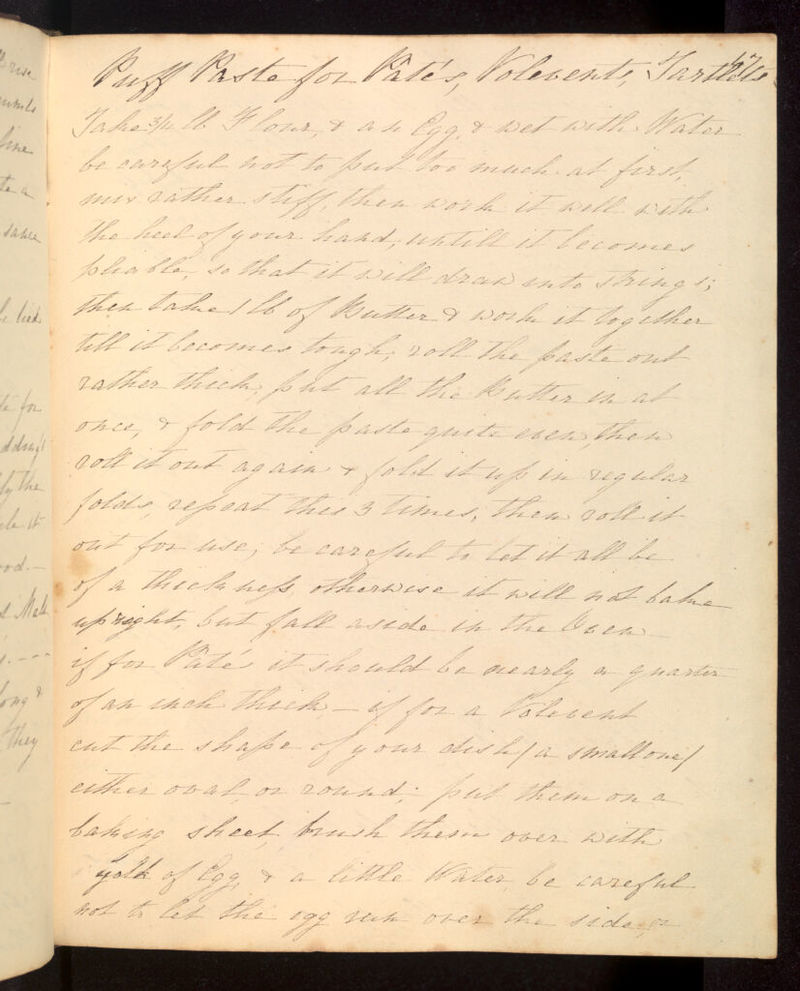 Puff Paste for Patés, Volevents, Tartlets
Take 3/4 lb Flour, & an Egg & wet with Water
be careful not to put too much at first,
mix rather stiff, then work it well with
the heel of your hand, untill it becomes
pliable, so that it will draw into strings;
then take 1 lb of Butter & work it together
till it becomes tough; roll the paste out
rather thick, put all the Butter in at
once, & fold the paste quite even, then
roll it out again & fold it up in regular
folds, repeat this 3 times, then roll it
out for use; be careful to let it all be
of a thickness otherwise it will not bake
upright, but fall aside in the Oven
if for Patés it should be nearly a quarter
of an inch thick – if for a Volevent
cut the shape of your dish / a small one /
either oval or round; put them on a
baking sheet, brush them over with
yolk of Egg & a little Water, be careful
not to let the egg run over the side, or
rise
fine
te a
same
te for
by the
ood. –
they